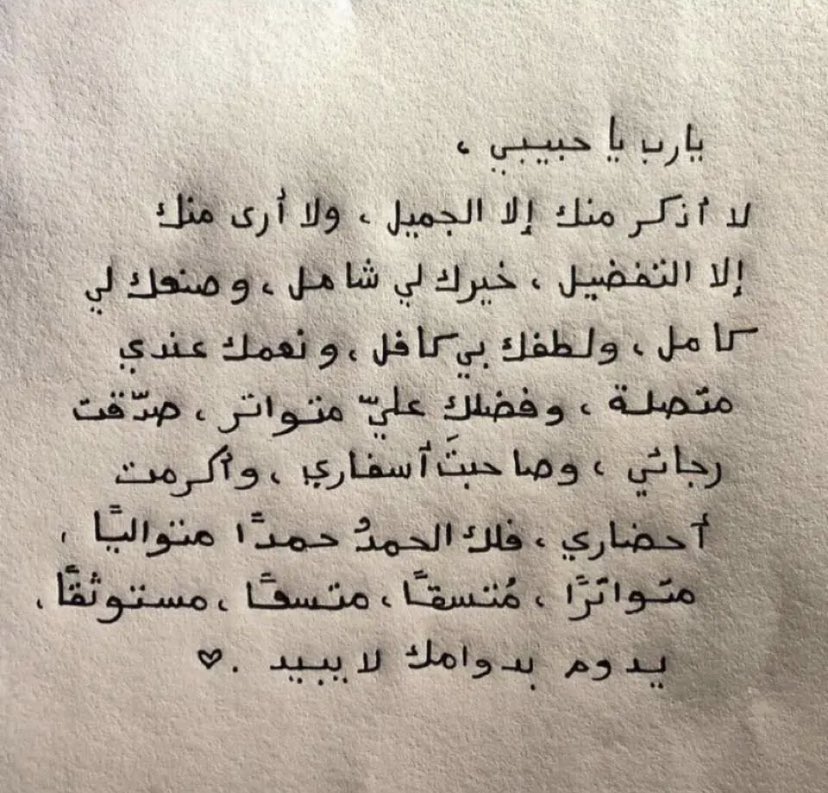 يارب يا حبيبي ،
لا أذكر منك إلا الجميل ، ولا أرى منك
إلا التفضيل ، خيرك لي شامل ، وصنعك لي
كامل ، ولطفك بي كافل ، ونعمك عندي
متصلة ، وفضلك عليّ متواتر ، صدّقت
رجائي ، وصاحبتَ أسفاري ، وأكرمت
أحضاري ، فلك الحمدُ حمدًا متواليًا ،
متواترًا ، مُتسقًا ، متسقًا ، مستوثقًا ،
يدوم بدوامك لا يبيد . ♡